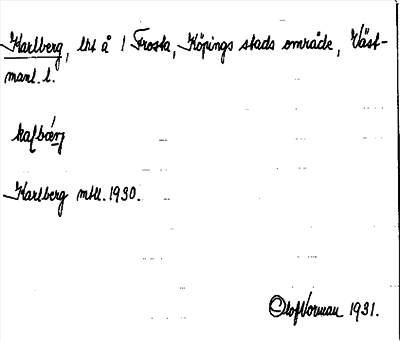 Karlberg, lht å 1 Frosta, Köpings stads område, Väst-
manl. l.
kaɭbærj
Karlberg mtl. 1930.
Olof Norman 1931.